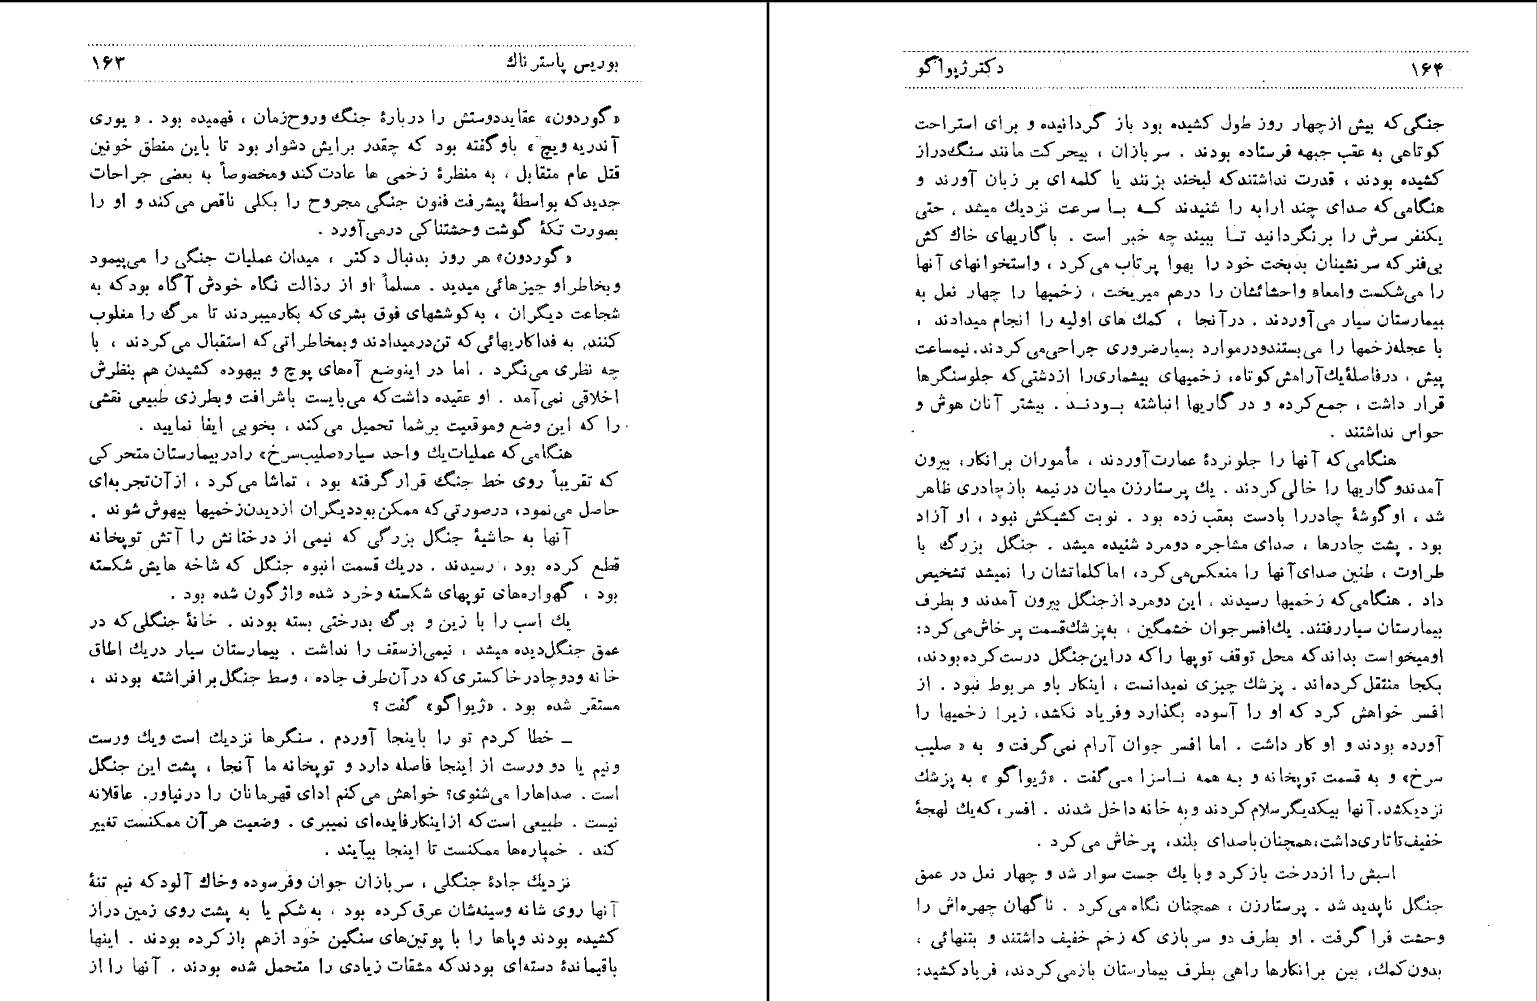 بوریس پاسترناك ۱۶۳
«گوردون» عقایددوستش را دربارهٔ جنگ وروح‌زمان ، فهمیده بود . « یوری
آندریه ویچ » باو گفته بود که چقدر برایش دشوار بود تا باین منطق خونین
قتل عام متقابل ، به منظرهٔ زخمی ها عادت‌کند ومخصوصاً به بعضی جراحات
جدیدکه بواسطهٔ پیشرفت فنون جنگی مجروح را بکلی ناقص می‌کند و او را
بصورت تکهٔ گوشت وحشتناکی درمی‌آورد .
«گوردون» هر روز بدنبال دکتر ، میدان عملیات جنگی را می‌پیمود
وبخاطراو چیزهائی میدید . مسلماً او از رذالت نگاه خودش آگاه بودکه به
شجاعت دیگران ، به‌کوششهای فوق بشری‌که بکارمیبردند تا مرگ را مغلوب
کنند، به فداکاریهائی‌که تن‌درمیدادند وبمخاطراتی‌که استقبال می‌کردند ، با
چه نظری می‌نگرد . اما در اینوضع آه‌های پوچ و بیهوده کشیدن هم بنظرش
اخلاقی نمی‌آمد . او عقیده داشت‌که می‌بایست باشرافت وبطرزی طبیعی نقشی
را که این وضع وموقعیت برشما تحمیل می‌کند ، بخوبی ایفا نمایید .
هنگامی‌که عملیات‌یك واحد سیار«صلیب‌سرخ» رادربیمارستان متحرکی
که تقریباً روی خط جنگ قرارگرفته بود ، تماشا می‌کرد ، ازآن‌تجربه‌ای
حاصل می‌نمود، درصورتی‌که ممکن‌بوددیگران ازدیدن‌زخمیها بیهوش شوند .
آنها به حاشیهٔ جنگل بزرگی که نیمی از درختانش را آتش توپخانه
قطع کرده بود ، رسیدند . دریك قسمت انبوه جنگل که شاخه هایش شکسته
بود ، گهواره‌های توپهای شکسته وخرد شده واژگون شده بود .
یك اسب را با زین و برگ بدرختی بسته بودند . خانهٔ جنگلی‌که در
عمق جنگل‌دیده میشد ، نیمی‌ازسقف را نداشت . بیمارستان سیار دریك اطاق
خانه ودوچادرخاکستری‌که درآن‌طرف جاده ، وسط جنگل‌برافراشته بودند ،
مستقر شده بود . «ژیواگو» گفت ؟
ــ خطا کردم تو را باینجا آوردم . سنگرها نزدیك است ویك ورست
ونیم یا دو ورست از اینجا فاصله دارد و توپخانه ما آنجا ، پشت این جنگل
است . صداهارا می‌شنوی؟ خواهش می‌کنم ادای قهرمانان را درنیاور. عاقلانه
نیست . طبیعی است‌که ازاینکارفایده‌ای نمیبری . وضعیت هرآن ممکنست تغییر
کند . خمپاره‌ها ممکنست تا اینجا بیآیند .
نزدیك جادهٔ جنگلی ، سربازان جوان وفرسوده وخاك آلودکه نیم تنهٔ
آنها روی شانه وسینه‌شان عرق‌کرده بود ، به‌شکم یا به پشت روی زمین دراز
کشیده بودند وپاها را با پوتین‌های سنگین خود ازهم بازکرده بودند . اینها
باقیماندهٔ دسته‌ای بودندکه مشقات زیادی را متحمل شده بودند . آنها را از
۱۶۴ دکتر ژیواگو
جنگی‌که بیش ازچهار روز طول کشیده بود باز گردانیده و برای استراحت
کوتاهی به عقب جبهه فرستاده بودند . سربازان ، بیحرکت مانند سنگ‌دراز
کشیده بودند ، قدرت نداشتندکه لبخند بزنند یا کلمه‌ای بر زبان آورند و
هنگامی‌که صدای چند ارابه را شنیدند کــه بــا سرعت نزدیك میشد ، حتی
یکنفر سرش را برنگردانید تــا ببیند چه خبر است . باگاریهای خاك کش
بی‌فنرکه سرنشینان بدبخت خود را بهوا پرتاب می‌کرد ، واستخوانهای آنها
را می‌شکست وامعاء واحشائشان را درهم میریخت ، زخمیها را چهار نعل به
بیمارستان سیار می‌آوردند . درآنجا ، کمك های اولیه را انجام میدادند ،
با عجله‌زخمها را می‌بستندودرموارد بسیارضروری جراحی‌می‌کردند. نیمساعت
پیش ، درفاصلهٔ‌یك‌آرامش‌کوتاه، زخمیهای بیشماری‌را ازدشتی‌که جلوسنگرها
قرار داشت ، جمع‌کرده و درگاریها انباشته بــودنــد . بیشتر آنان هوش و
حواس نداشتند .
هنگامی‌که آنها را جلونردهٔ عمارت‌آوردند ، مأموران برانکار، بیرون
آمدندوگاریها را خالی‌کردند . یك پرستارزن میان درنیمه بازچادری ظاهر
شد ، اوگوشهٔ چادررا بادست بعقب زده بود . نوبت کشیکش نبود ، او آزاد
بود . پشت چادرها ، صدای مشاجره دومرد شنیده میشد . جنگل بزرگ با
طراوت ، طنین صدای‌آنها را منعکس‌می‌کرد، اماکلماتشان را نمیشد تشخیص
داد . هنگامی‌که زخمیها رسیدند ، این دومرد ازجنگل بیرون آمدند و بطرف
بیمارستان سیاررفتند. یك‌افسرجوان خشمگین ، به‌پزشك‌قسمت پرخاش‌می‌کرد:
اومیخواست بداندکه محل توقف توپها راکه دراین‌جنگل درست‌کرده‌بودند،
بکجا منتقل‌کرده‌اند . پزشك چیزی نمیدانست ، اینکار باو مربوط نبود . از
افسر خواهش کرد که او را آسوده بگذارد وفریاد نکشد، زیرا زخمیها را
آورده بودند و او کار داشت . اما افسر جوان آرام نمی‌گرفت و به « صلیب
سرخ» و به قسمت توپخانه و بـه همه نــاسزا مــی‌گفت . «ژیواگو » به پزشك
نزدیکشد.آنها بیکدیگرسلام‌کردند وبه خانه داخل شدند . افسر،که‌یك لهجهٔ
خفیف‌تاتاری‌داشت،همچنان‌باصدای بلند، پرخاش می‌کرد .
اسبش را ازدرخت بازکرد وبا یك جست سوار شد و چهار نعل در عمق
جنگل ناپدید شد . پرستارزن ، همچنان نگاه می‌کرد . ناگهان چهره‌اش را
وحشت فراگرفت . او بطرف دو سربازی که زخم خفیف داشتند و بتنهائی ،
بدون‌کمك، بین برانکارها راهی بطرف بیمارستان بازمی‌کردند، فریادکشید: